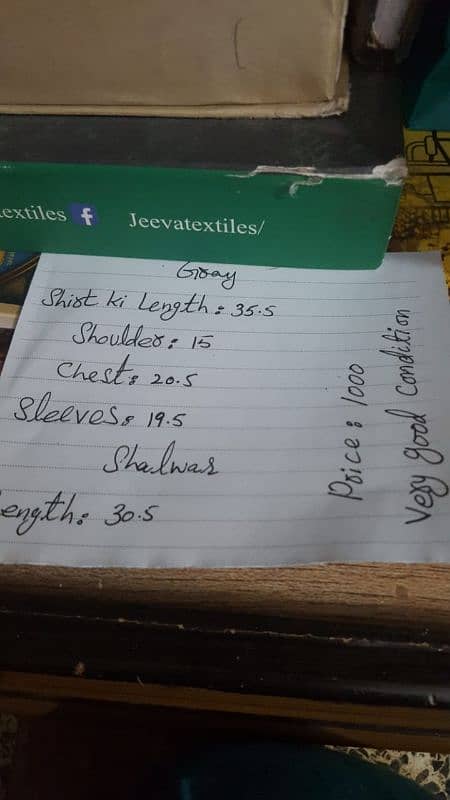 extiles f Jeevatextiles/
Gray
Shirt ki Length: 35.5
Shoulder: 15
Chest: 20.5
Sleeves: 19.5
Shalwar
ength: 30.5
Price: 1000
Very good condition